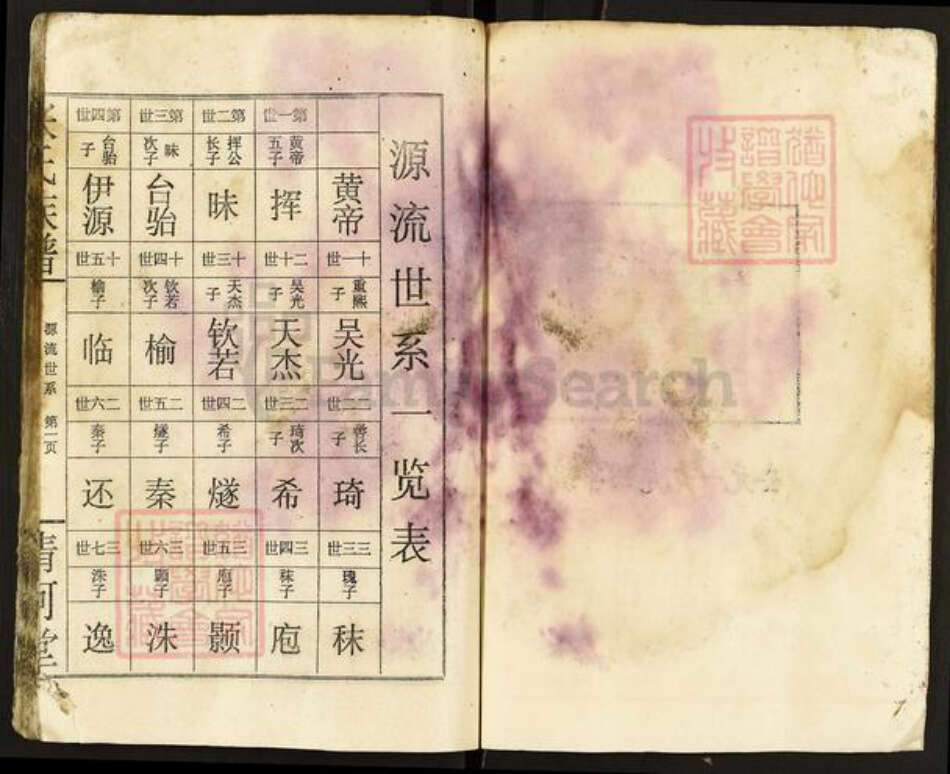 源流世系一览表
第一世 第二世 第三世 第四世
黄帝五子 挥公长子 昧次子 台骀子
黄帝 挥 昧 台骀 伊源
十一世 十二世 十三世 十四世 十五世
重熙子 吴光子 天杰子 钦若次子 榆子
吴光 天杰 钦若 榆 临
二二世 二三世 二四世 二五世 二六世
善长子 琦次子 希子 燧子 秦子
琦 希 燧 秦 还
三三世 三四世 三五世 三六世 三七世
瑰子 秣子 庖子 颢子 洙子
秣 庖 颢 洙 逸
源流世系 第一页
清河堂
譜學會
收藏
FamilySearch